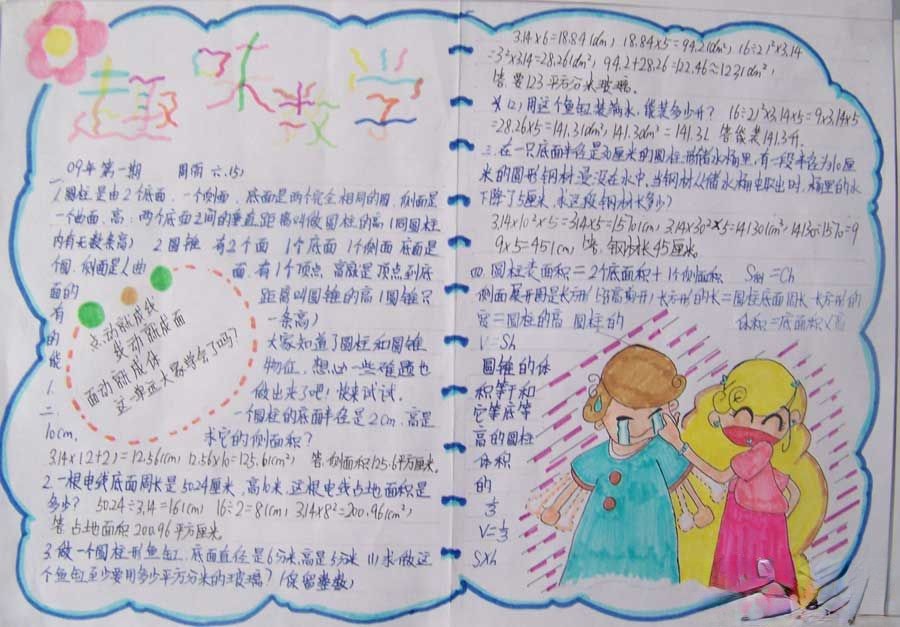 趣味数学
09年第一期 周雨 六.(5)
一
1.圆柱是由2个底面,一个侧面,底面是两个完全相同的圆,侧面是
一个曲面,高:两个底面之间的垂直距离叫做圆柱的高(同圆柱
内有无数条高) 2圆锥 有2个面 1个底面 1个侧面 底面是
个圆,侧面是个曲面,有1个顶点,高就是顶点到底
面的距离叫圆锥的高(圆锥只
有一条高)
点动就成线
线动就成面
面动就成体
这一单元大家学会了吗?
大家知道了圆柱和圆锥
的物征,想必一些难题也
能做出来了吧!快来试试.
1.
二 一个圆柱的底面半径是2cm,高是
10cm, 求它的侧面积?
3.14×(2+2)=12.56(cm) 12.56×10=125.6(cm²) 答:侧面积125.6平方厘米.
2.一根电线底面周长是50.24厘米,高6米,这根电线占地面积是
多少? 50.24÷3.14=16(cm) 16÷2=8(cm) 3.14×8²=200.96(cm²)
答:占地面积200.96平方厘米
3.做一个圆柱形鱼缸,底面直径是6分米,高是5分米 (1)求做这
个鱼缸至少要用多少平方分米的玻璃?(保留整数)
3.14×6=18.84(dm) 18.84×5=94.2(dm²) (6÷2)²×3.14
=3²×3.14=28.26(dm²) 94.2+28.26=122.46≈123(dm²)
答:要123平方分米玻璃.
(2)用这个鱼缸装满水,能装多少升? (6÷2)²×3.14×5=9×3.14×5
=28.26×5=141.3(dm³) 141.3dm³=141.3L 答:能装141.3升.
三.在一只底面半径是30厘米的圆柱形储水桶里,有一段半径为10厘
米的圆形钢材浸没在水中,当钢材从储水桶里取出时,桶里的水
下降了5厘米,求这段钢材长多少?
3.14×10²×5=314×5=1570(cm) 3.14×30²×5=14130(cm³) 14130÷1570=9
9×5=45(cm) 答:钢材长45厘米.
四.圆柱表面积=2个底面积+1个侧面积 S侧=Ch
侧面展开图是长方形(沿高剪开) 长方形的长=圆柱底面周长 长方形的
宽=圆柱的高 圆柱的体积=底面积×高
V=Sh
圆锥的体
积等于和
它等底等
高的圆柱
体积
的
1/3
V=1/3
S×h